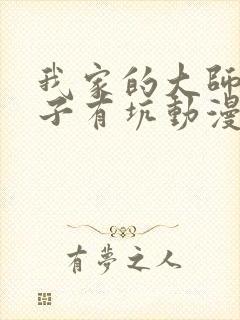 我家的大師
子有坑動漫
有夢之人